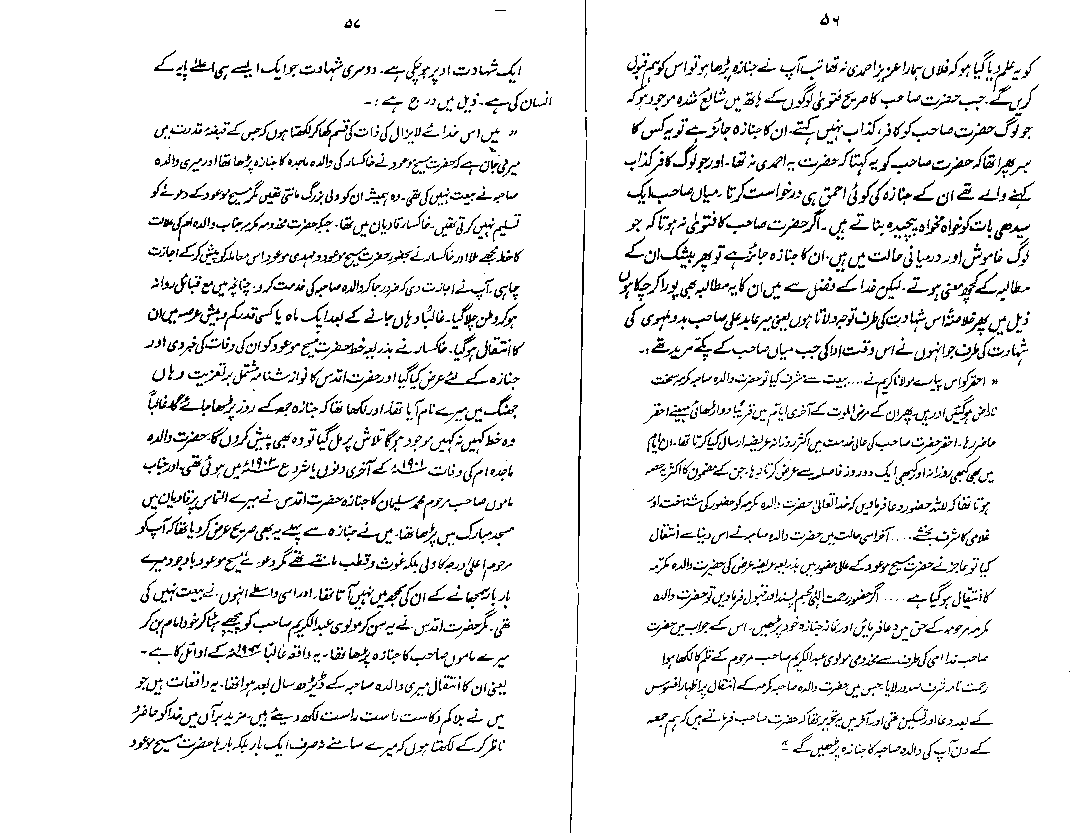 ۵۶
کو یہ علم دیا گیا ہو کہ فلاں ہمارا عزیز احمدی نہ تھا تب آپ نے جنازہ پڑھا ہو تو اس کو ہم قبول
کریں گے۔ جب حضرت صاحب کا صریح فتویٰ لوگوں کے ہاتھ میں شائع شدہ موجود ہو کہ
جو لوگ حضرت صاحب کو کافر، کذاب نہیں کہتے۔ ان کا جنازہ جائز ہے تو یہ کس کا
سر پھرا تھا کہ حضرت صاحب کو یہ کہتا کہ حضرت یہ احمدی نہ تھا۔ اور جو لوگ کافر کذاب
کہنے والے تھے ان کے جنازہ کی کوئی احمق ہی درخواست کرتا۔ میاں صاحب ایک
سیدھی بات کو خواہ مخواہ پیچیدہ بناتے ہیں۔ اگر حضرت صاحب کا فتویٰ نہ ہوتا کہ جو
لوگ خاموش اور درمیانی حالت میں ہیں، ان کا جنازہ جائز ہے تو پھر بیشک ان کے
مطالبہ کے کچھ معنی ہوتے۔ لیکن خدا کے فضل سے میں ان کا یہ مطالبہ بھی پورا کر چکا ہوں
ذیل میں پھر خلاصتاً اس شہادت کی طرف توجہ دلاتا ہوں یعنی میر عابد علی صاحب بدوملہوی کی
شہادت کی طرف جو انہوں نے اس وقت ادا کی جب میاں صاحب کے پکے مرید تھے :۔
" احقر کو اس پیارے مولانا کریم نے .... بیعت سے مشرف کیا تو حضرت والدہ صاحبہ مکرمہ سخت
ناراض ہو گئیں اور بس، پھر ان کے مرض الموت کے آخری ایام میں قریباً دو اڑھائی مہینے احقر
حاضر رہا۔ احقر حضرت صاحب کی عالی خدمت میں اکثر روزانہ عریضہ ارسال کیا کرتا تھا۔ ان ایام
میں بھی کبھی روزانہ اور کبھی ایک دو روز فاصلہ سے عرض کرتا رہا، جن کے مضمون کا اکثر یہ حصہ
ہوتا تھا کہ للہ حضور دعا فرمادیں کہ خدا تعالیٰ حضرت والدہ مکرمہ کو حضور کی شناخت اور
غلامی کا شرف بخشے .... آخر اسی حالت میں حضرت والدہ صاحبہ نے اس دنیا سے انتقال
کیا تو عاجز نے حضرت مسیح موعود کے عالی حضور میں بذریعہ عریضہ عرض کی کہ حضرت والدہ مکرمہ
کا انتقال ہو گیا ہے .... اگر حضور رحمت الٰہی مجسم پسند اور قبول فرمادیں تو حضرت والدہ
مکرمہ مرحومہ کے حق میں دعا فرمائیں اور نماز جنازہ خود پڑھیں۔ اس کے جواب میں حضرت
صاحب فداہ امی کی طرف سے مخدومی مولوی عبدالکریم صاحب مرحوم کے قلم کا لکھا ہوا
رحمت نامہ شرف صدور لایا، جس میں حضرت والدہ صاحبہ مکرمہ کے انتقال پر اظہار افسوس
کے بعد دعا اور تسکین تھی اور آخر میں یہ تحریر تھا کہ حضرت صاحب فرماتے ہیں کہ ہم جمعہ
کے دن آپ کی والدہ صاحبہ کا جنازہ پڑھیں گے "
۵۷
ایک شہادت اوپر ہو چکی ہے۔ دوسری شہادت جو ایک ایسے ہی اعلیٰ پایہ کے
انسان کی ہے۔ ذیل میں درج ہے :۔
" میں اس خدائے لایزال کی ذات کی قسم کھا کر لکھتا ہوں کہ جس کے قبضۂ قدرت میں
میری جان ہے کہ حضرت مسیح موعود نے خاکسار کی والدہ ماجدہ کا جنازہ پڑھا تھا اور میری والدہ
صاحبہ نے بیعت نہیں کی تھی۔ وہ ہمیشہ ان کو ولی بزرگ مانتی تھیں مگر مسیح موعود کے دعوے کو
تسلیم نہیں کرتی تھیں۔ خاکسار قادیان میں تھا۔ جبکہ حضرت مخدومہ مکرمہ جناب والدہ ام کی علالت
کا خط مجھے ملا اور خاکسار نے بحضور حضرت مسیح موعود و مہدی موعود اس معاملہ کو پیش کر کے اجازت
چاہی۔ آپ نے اجازت دی کہ ضرور جا کر والدہ صاحبہ کی خدمت کرو۔ چنانچہ میں مع قبائل روانہ
ہو کر وطن چلا گیا۔ غالباً وہاں جانے کے بعد ایک ماہ یا کسی قدر کم و بیش عرصہ میں ان
کا انتقال ہو گیا۔ خاکسار نے بذریعہ خط حضرت مسیح موعود کو ان کی وفات کی خبر دی اور
جنازہ کے لئے عرض کیا گیا اور حضرت اقدس کا نوازشنامہ مشتمل بر تعزیت وہاں
جھنگ میں میرے نام آیا تھا۔ اور لکھا تھا کہ جنازہ جمعہ کے روز پڑھا جائے گا۔ غالباً
وہ خط کہیں نہ کہیں موجود ہوگا تلاش پر مل گیا تو وہ بھی پیش کروں گا۔ حضرت والدہ
ماجدہ ام کی وفات ۱۹۰۱ء کے آخری دنوں یا شروع ۱۹۰۲ء میں ہوئی تھی۔ اور جناب
ماموں صاحب مرحوم محمد سلیمان کا جنازہ حضرت اقدس نے میرے التماس پر قادیان میں
مسجد مبارک میں پڑھا تھا۔ میں نے جنازہ سے پہلے یہ بھی صریح عرض کر دیا تھا کہ آپ کو
مرحوم اعلیٰ درجہ کا ولی بلکہ غوث و قطب مانتے تھے مگر دعوئے مسیح موعود باوجود میرے
بار بار سمجھانے کے ان کی سمجھ میں نہیں آتا تھا۔ اور اسی واسطے انہوں نے بیعت نہیں کی
تھی۔ مگر حضرت اقدس نے یہ سن کر مولوی عبدالکریم صاحب کو پیچھے ہٹا کر خود امام بن کر
میرے ماموں صاحب کا جنازہ پڑھا تھا۔ یہ واقعہ غالباً کے اوائل کا ہے۔
یعنی ان کا انتقال میری والدہ صاحبہ کے ڈیڑھ سال بعد ہوا تھا۔ یہ واقعات ہیں جو
میں نے بلا کم و کاست راست راست لکھ دیئے ہیں۔ مزید برآں میں خدا کو حاضر و
ناظر کر کے لکھتا ہوں کہ میرے سامنے نہ صرف ایک بار بلکہ بارہا حضرت مسیح موعود